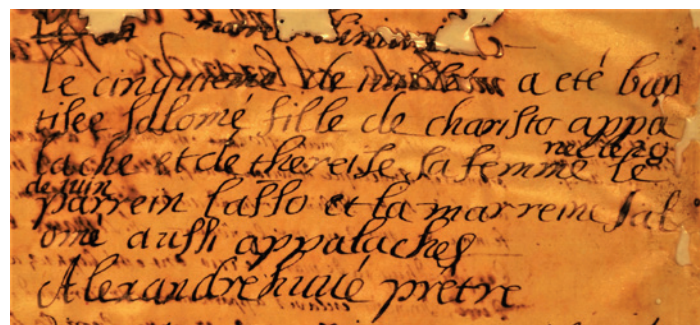 le cinquieme de a eté bap
tisee salomé fille de charisto appa
lache et de therese sa femme née le 29
de juin
parrein lasso et la marreine sal
omé aussi appalaches
Alexandre huvé prêtre